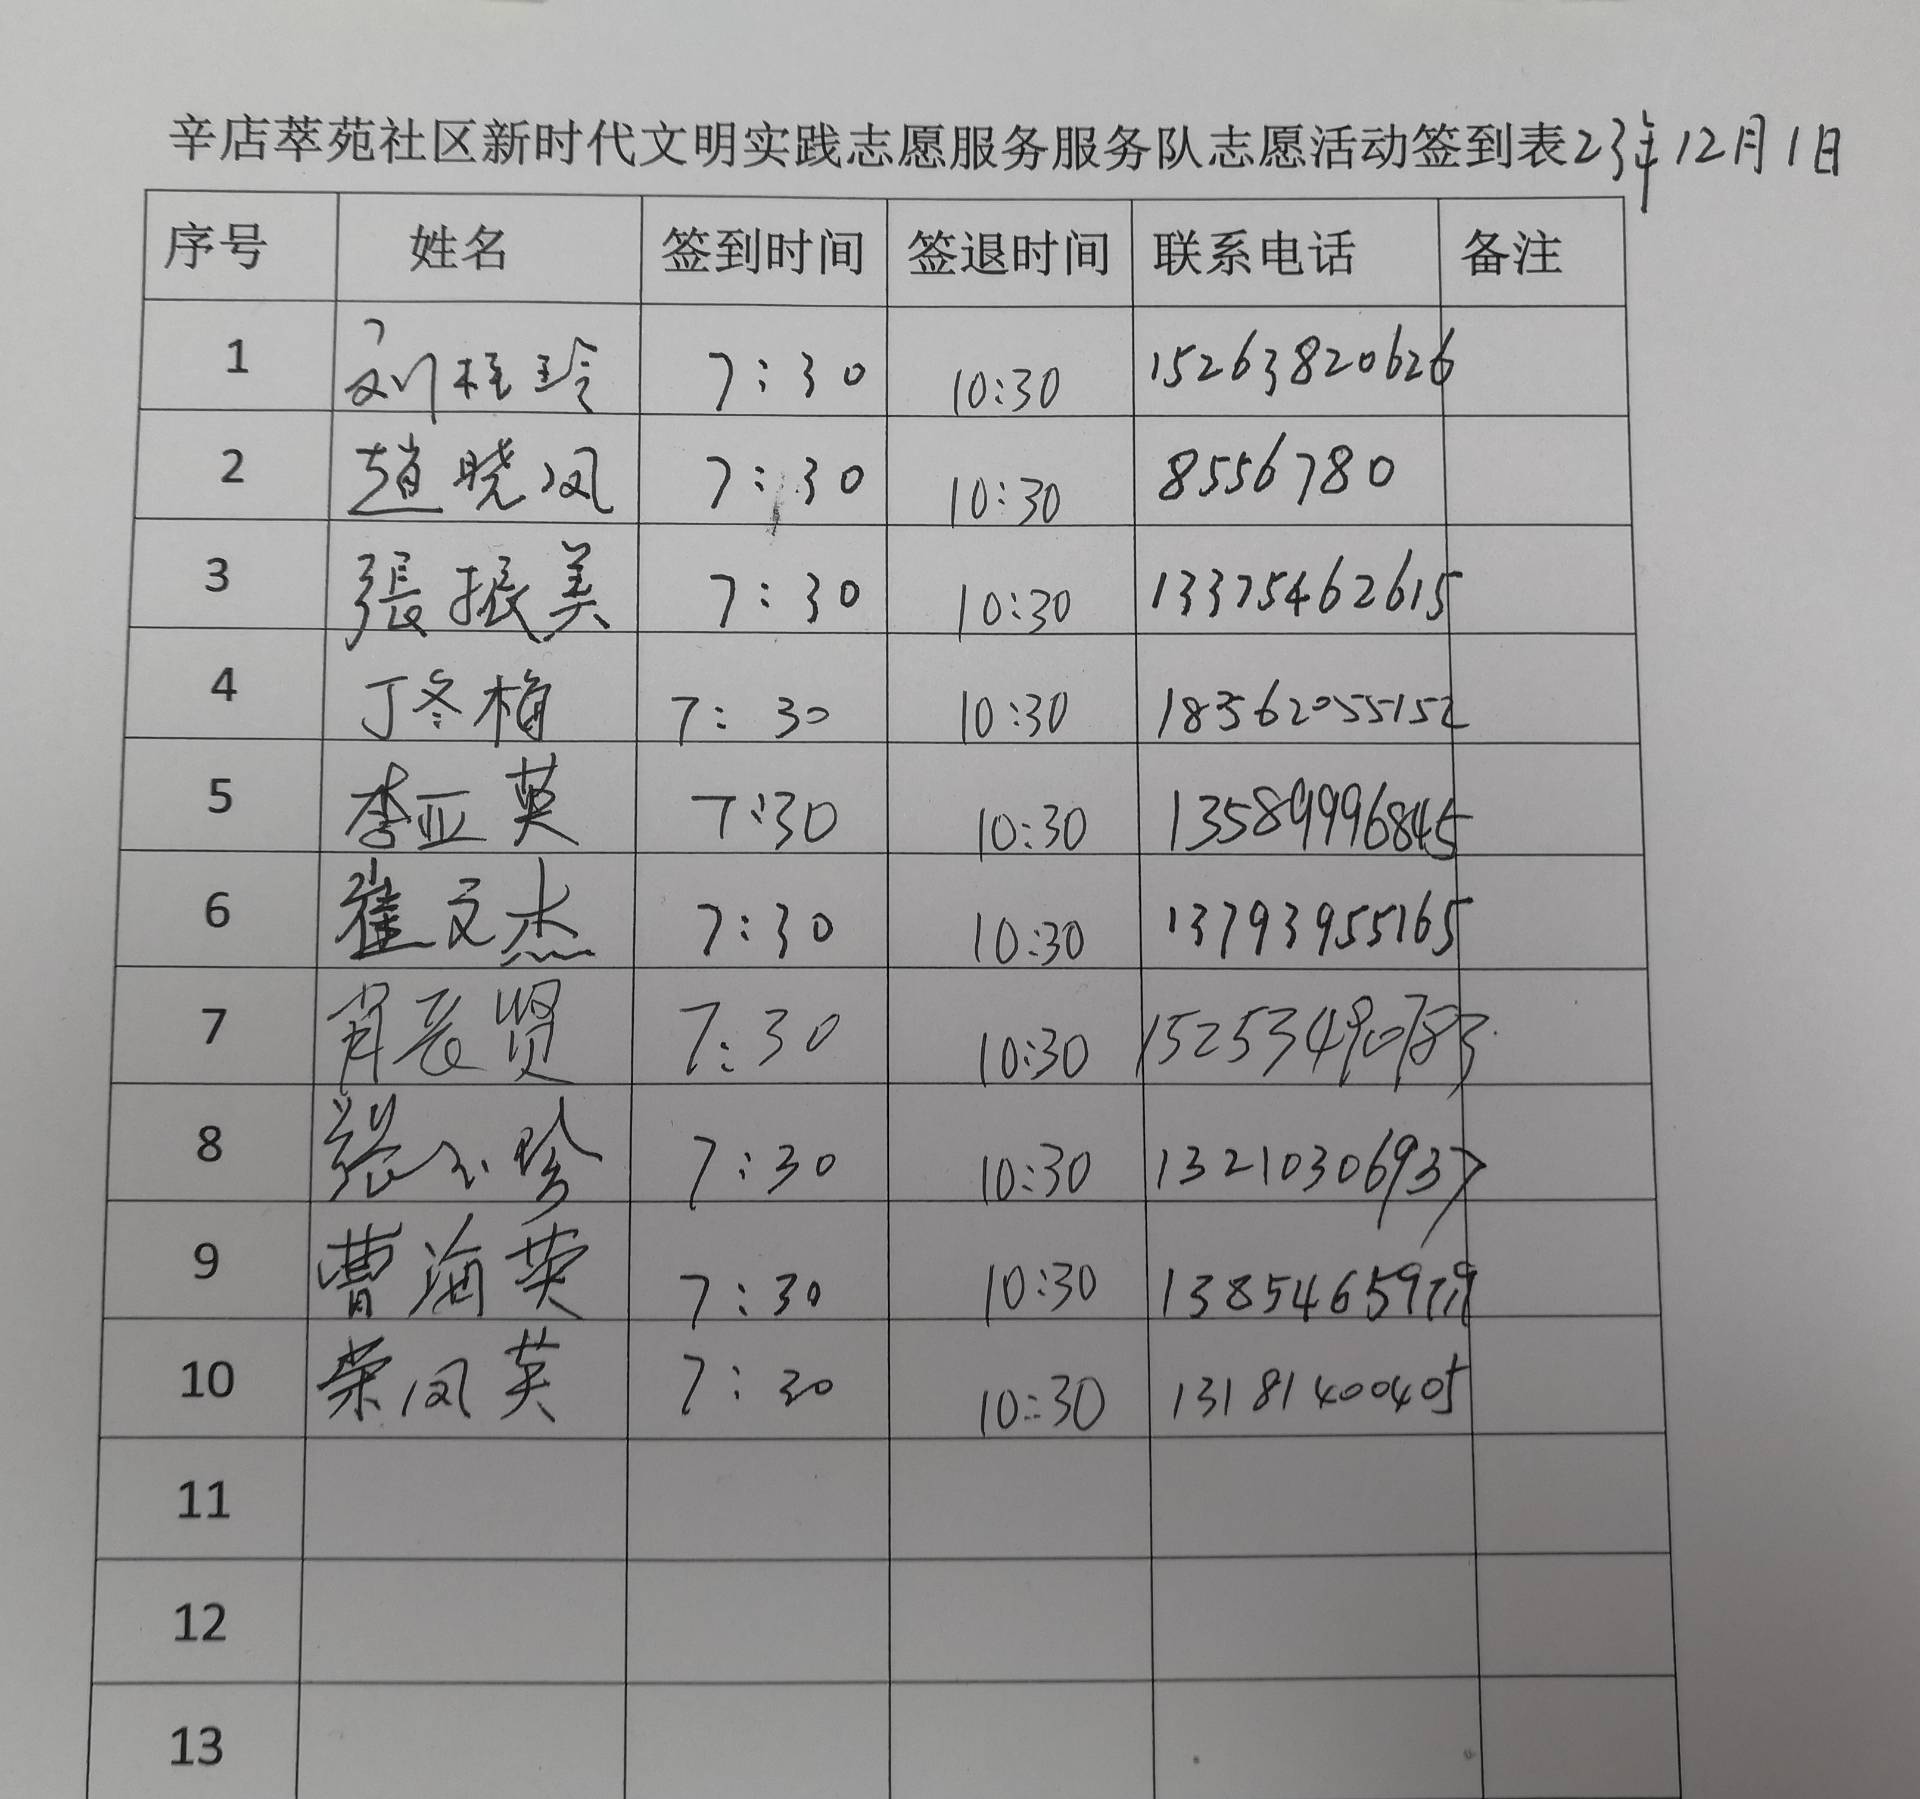 辛店萃苑社区新时代文明实践志愿服务服务队志愿活动签到表23年12月1日
序号 姓名 签到时间 签退时间 联系电话 备注
1 刘桂玲 7:30 10:30 15263820626
2 趙晓凤 7:30 10:30 8556780
3 張振美 7:30 10:30 13375462615
4 丁冬梅 7:30 10:30 18562055152
5 李亚英 7:30 10:30 13589996845
6 崔文杰 7:30 10:30 13793955165
7 肖长贤 7:30 10:30 15253490783
8 張玉珍 7:30 10:30 13210306937
9 曹海英 7:30 10:30
10 荣凤英 7:30 10:30 13181400405
11
12
13